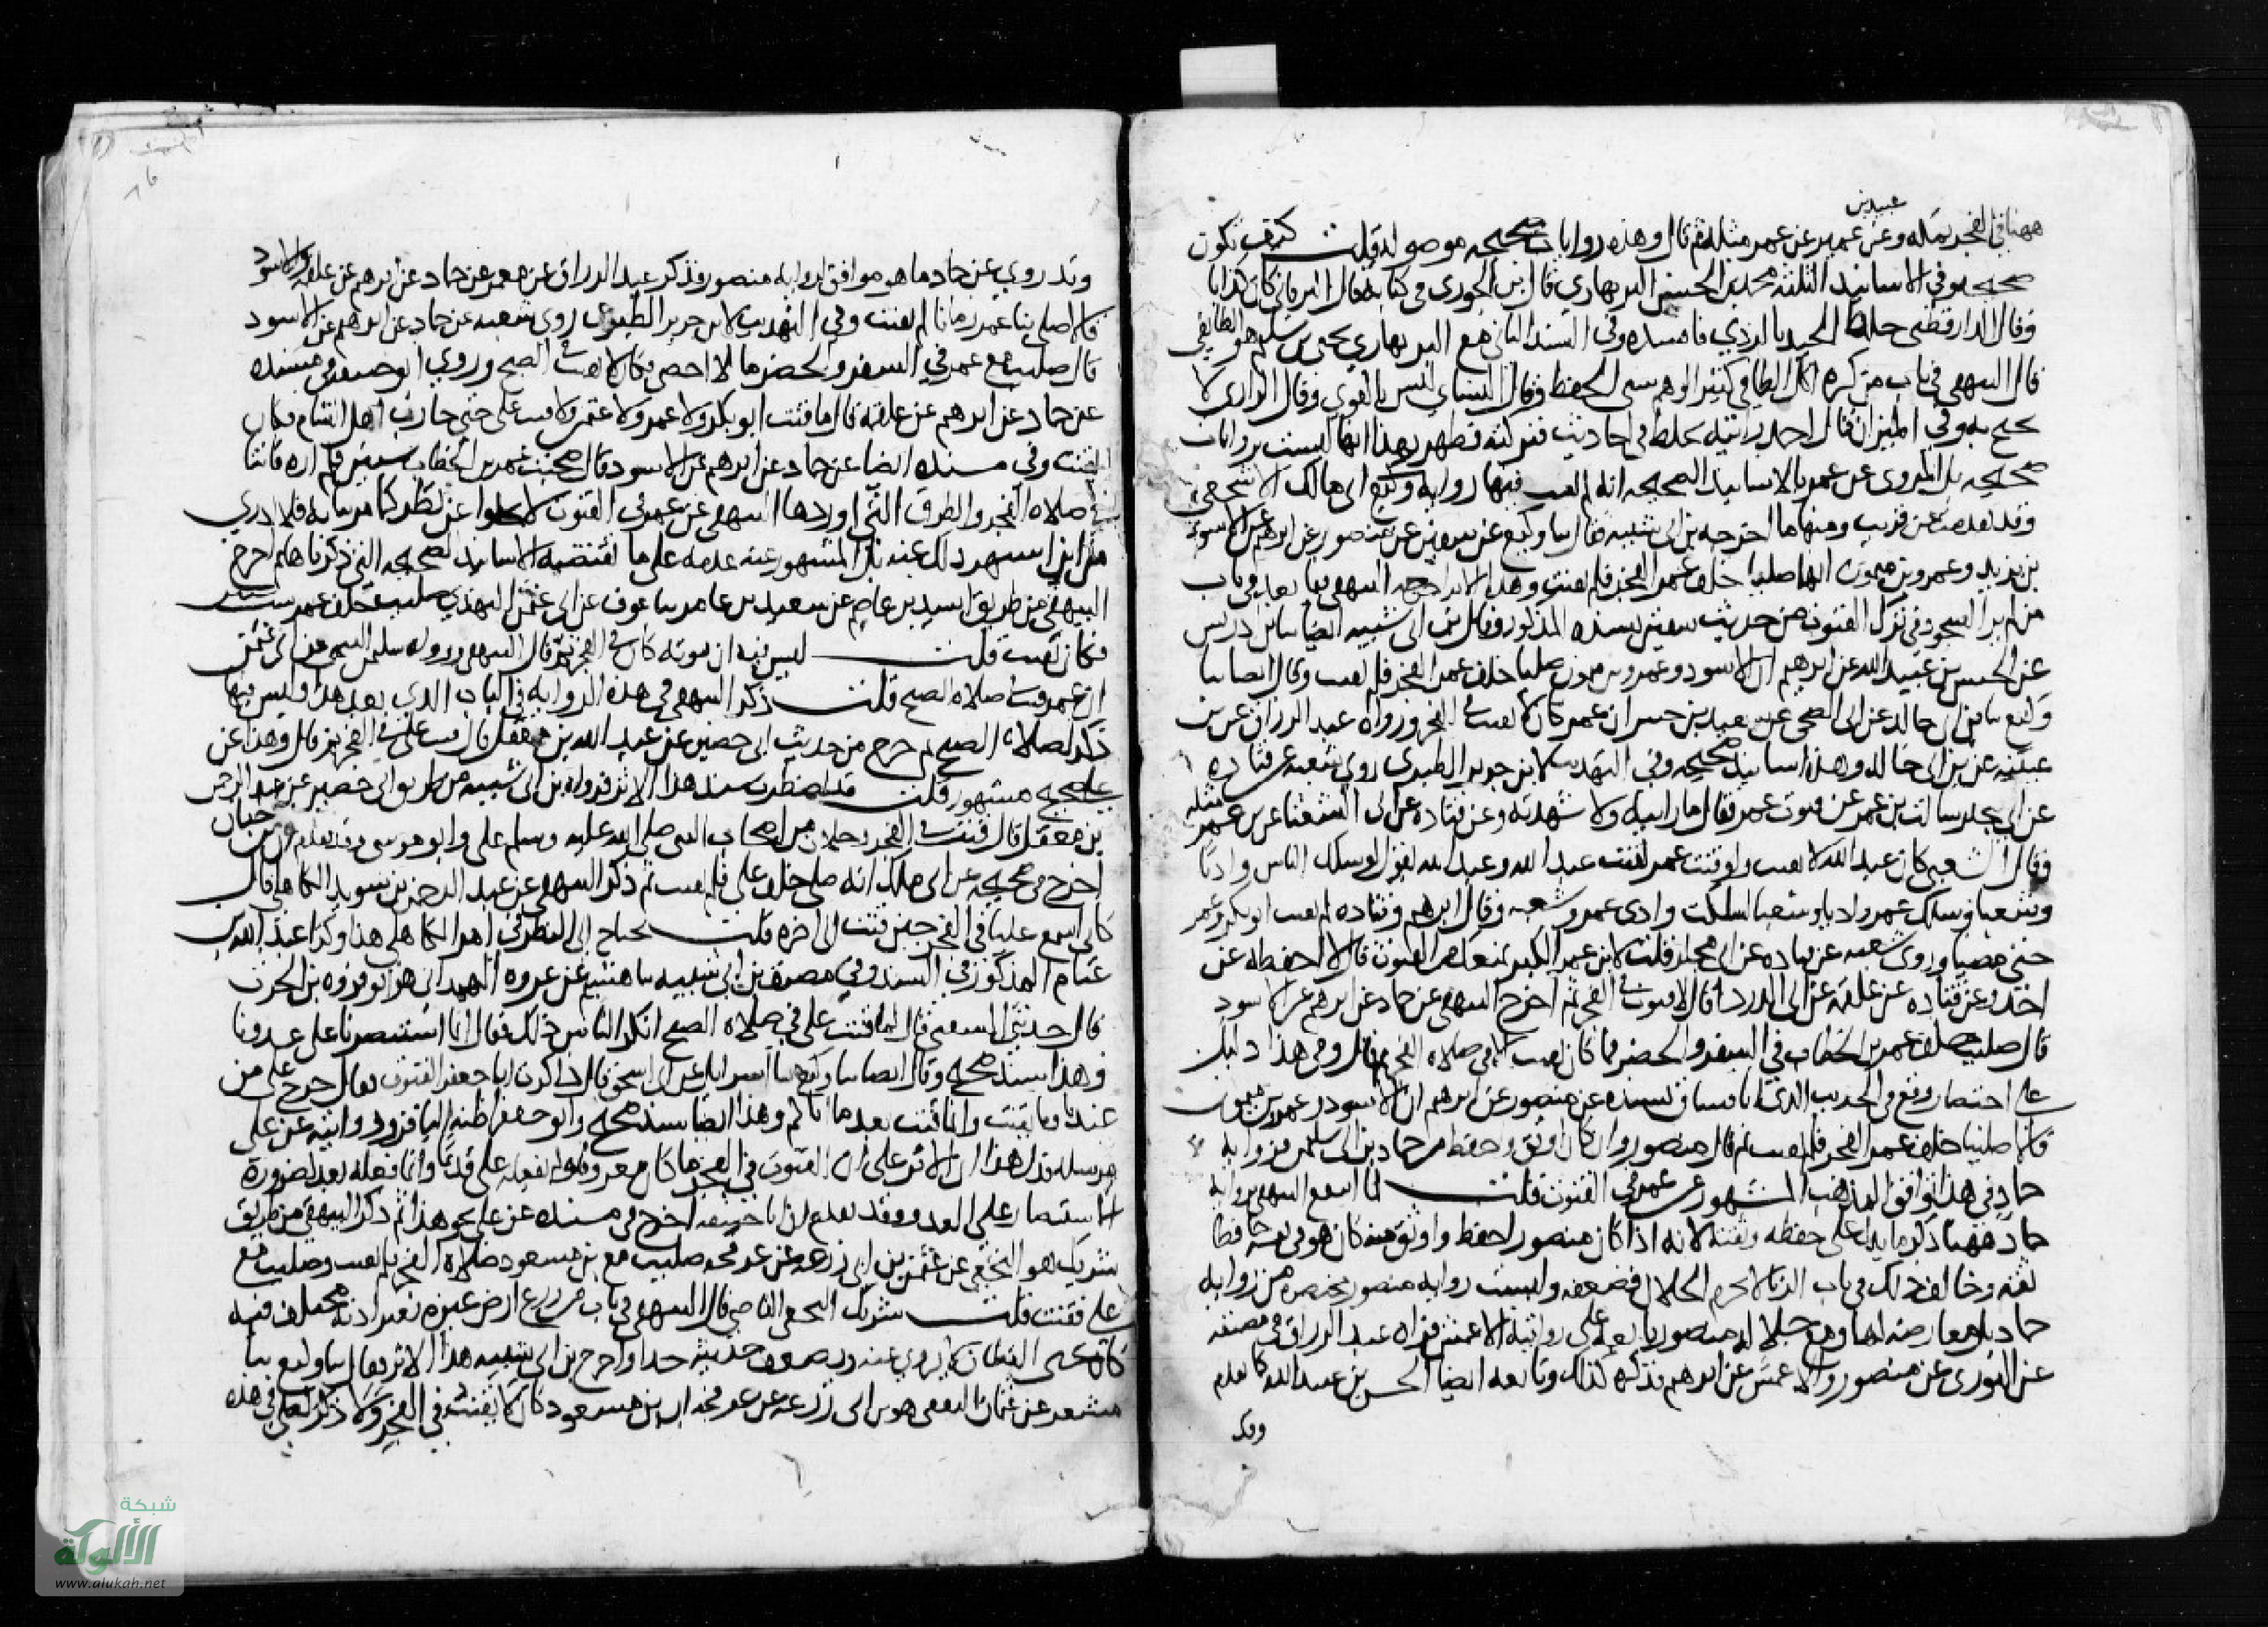 عبيد بن
ههنا في الفجر بمكة وعن عمير عن عمر مثله ثم قال وهذه روايات صحيحه موصوله قلت كيف تكون
صحيحه وفي الاسانيد الثلثه محمد بن الحسن البربهاري قال ابن الجوزي في كتابه قال البرقاني كان كذابا
وقال الدارقطني خلط الجيد بالردي فافسده وفي السند الثاني مع البربهاري يحيى بن سليم هو الطايفي
قال البيهقي في باب من كره اكل الطافي كثير الوهم سيى الحفظ وقال النساي ليس بالقوي وقال الرازي لا
يحتج به وفي الميزان قال احمد رايته يخلط في احاديث فتركته فظهر بهذا انها ليست بروايات
صحيحه بل المروي عن عمر بالاسانيد الصحيحه انه لم يقنت فيها روايه وكيع ابي مالك الاشجعي
وقد تقدمت عن قريب ومنها ما اخرجه بن ابي شيبه فقال ثنا وكيع عن سفين عن منصور عن ابرهيم عن الاسود
بن يزيد وعمرو بن ميمون انهما صليا خلف عمر الفجر فلم يقنت وهذا الاثر اخرجه البيهقي فيما بعد في باب
من لم ير السجود في ترك القنوت من حديث سفين بسنده المذكور وقال بن ابي شيبه ايضا ثنا بن ادريس
عن الحسن بن عبيد الله عن ابرهيم ان الاسود وعمرو بن ميمون صليا خلف عمر الفجر فلم يقنت وقال ايضا ثنا
وكيع ثنا بن ابي خالد عن ابي الضحى عن سعيد بن جبير ان عمر كان لا يقنت في الفجر ورواه عبد الرزاق عن بن
عيينه عن بن ابي خالد وهذه اسانيد صحيحه وفي التهذيب لابن جرير الطبري روي شعبه عن قتاده
عن ابي مجلز سالت بن عمر عن قنوت عمر فقال ما رايته ولا شهدته وعن قتاده عن ابي الشعثا عن بن عمر مثله
وقال الشعبي كان عبد الله لا يقنت ولو قنت عمر لقنت عبد الله وعبد الله يقول لو سلك الناس واديا
وشعبا وسلك عمر واديا وشعبا لسلكت وادي عمر وشعبه وقال ابرهيم وقتاده لم يقنت ابو بكر وعمر
حتى مضيا وروي شعبه عن قتاده عن ابي مجلز قلت لابن عمر الكبر يمنعك من القنوت قال لا احفظه عن
احد وعن قتاده عن علقمه عن ابي الدرداء قال لا قنوت في الفجر ثم اخرج البيهقي عن حماد عن ابرهيم عن الاسود
قال صليت خلف عمر بن الخطاب في السفر والحضر فما كان يقنت الا في صلاه الفجر ثم قال وفي هذا دليل
على اختصار وقع في الحديث الذي انا ثم ساق بسنده عن منصور عن ابرهيم ان الاسود وعمرو بن ميمون
قالا صلينا خلف عمر الفجر فلم يقنت ثم قال منصور وان كان اوثق واحفظ من حماد بن ابي سليمن فروايه
حماد في هذا توافق المذهب المشهور عن عمر في القنوت قلت لما انتفع البيهقي بروايه
حماد ههنا ذكر ما يدل على حفظه وثقته لانه اذا كان منصور احفظ واوثق منه كان هو في نفسه حافظا
ثقه وخالف ذلك في باب الزنا لا يحرم الحلال فضعفه وليست روايه منصور مختصره من روايه
حماد بل معارضه لها ومع جلاله منصور تابعه على روايته الاعمش فرواه عبد الرزاق في مصنفه
عن الثوري عن منصور والاعمش عن ابرهيم فذكره كذلك وتابعه ايضا الحسن بن عبيد الله كما تقدم
وقد
وقد روي عن حماد ما هو موافق لروايه منصور فذكر عبد الرزاق عن معمر عن حماد عن ابرهيم عن علقمه والاسود
قالا صلى بنا عمر زمانا لم يقنت وفي التهذيب لابن جرير الطبري روى شعبه عن حماد عن ابرهيم عن الاسود
قال صليت مع عمر في السفر والحضر ما لا احصي فكان لا يقنت في الصبح وروي ابو حنيفه في مسنده
عن حماد عن ابرهيم عن علقمه قال ما قنت ابو بكر ولا عمر ولا عثمن ولا قنت علي حتى حارب اهل الشام فكان
يقنت وفي مسنده ايضا عن حماد عن ابرهيم عن الاسود قال صحبت عمر بن الخطاب سنين فلم اره قانتا
في صلاه الفجر والطرق التي اوردها البيهقي عن عمر في القنوت لا تخلوا عن نظر كما مر بيانه فلا ادري
من اين اشتهر ذلك عنه بل المشهور عنه عدمه على ما تقتضيه الاسانيد الصحيحه التي ذكرناها ثم اخرج
البيهقي من طريق اسيد بن عاصم عن سعيد بن عامر ثنا عوف عن ابي عثمن النهدي صليت خلف عمر ست سنين
فكان يقنت قلت ليس فيه ان قنوته كان في الفجر ثم قال البيهقي ورواه سليمن التيمي عن ابي عثمن
ان عمر قنت في صلاه الصبح قلت ذكر البيهقي هذه الروايه في الباب الذي بعد هذا وليس فيها
ذكر لصلاه الصبح ثم خرج من حديث ابي حصين عن عبد الله بن معقل قال قنت علي في الفجر ثم قال وهذا عن
علي صحيح مشهور قلت قد اضطرب سند هذا الاثر فرواه بن ابي شيبه من طريق ابي حصين عن عبد الرحمن
بن معقل قال قنت في الفجر رجلان من اصحاب النبي صلى الله عليه وسلم علي وابو موسى وقد تقدم ان بن حبان
اخرج في صحيحه عن ابي ملك انه صلى خلف علي فلم يقنت ثم ذكر البيهقي عن عبد الرحمن بن سويد الكاهلي قال
كاني اسمع عليا في الفجر حين قنت الى اخره قلت يحتاج الى النظر في امر الكاهلي هذا وكذا عبد الملك بن
غنام المذكور في السند وفي مصنف بن ابي شيبه ثنا هشيم عن عروه الهمداني هو ابو فروه بن الحرث
قال حدثني الشعبي قال لما قنت علي في صلاه الصبح انكر الناس ذلك فقال انا استنصرنا على عدونا
وهذا سند صحيح وقال ايضا ثنا وكيع ثنا اسرايل عن ابي اسحق قال ذاكرت ابا جعفر القنوت فقال خرج علي من
عندنا وما يقنت وانما قنت بعد ما اتاكم وهذا ايضا سند صحيح وابو جعفر اظنه الباقر وروايته عن علي
مرسله فدل هذا الاثر على ان القنوت في الفجر ما كان معروفا ولم يفعله علي قديما وانما فعله بعد لضرورة
الاستنصار على العدو وقد تقدم ان ابا حنيفه اخرج في مسنده عن علي نحو هذا ثم ذكر البيهقي من طريق
شريك هو النخعي عن عثمن بن ابي زرعه عن عرفجه صليت مع بن مسعود صلاه الفجر فلم يقنت وصليت مع
علي فقنت قلت شريك النخعي القاضي قال البيهقي في باب من زرع ارض غيره بغير اذنه مختلف فيه
كان يحيى القطان لا يروي عنه ويضعف حديثه جدا واخرج بن ابي شيبه هذا الاثر فقال ثنا وكيع ثنا
مسعر عن عثمان الثقفي هو بن ابي زرعه عن عرفجه ان بن مسعود كان لا يقنت في الفجر ولا ذكر لعلي في هذه
شبكة
الألوكة
www.alukah.net